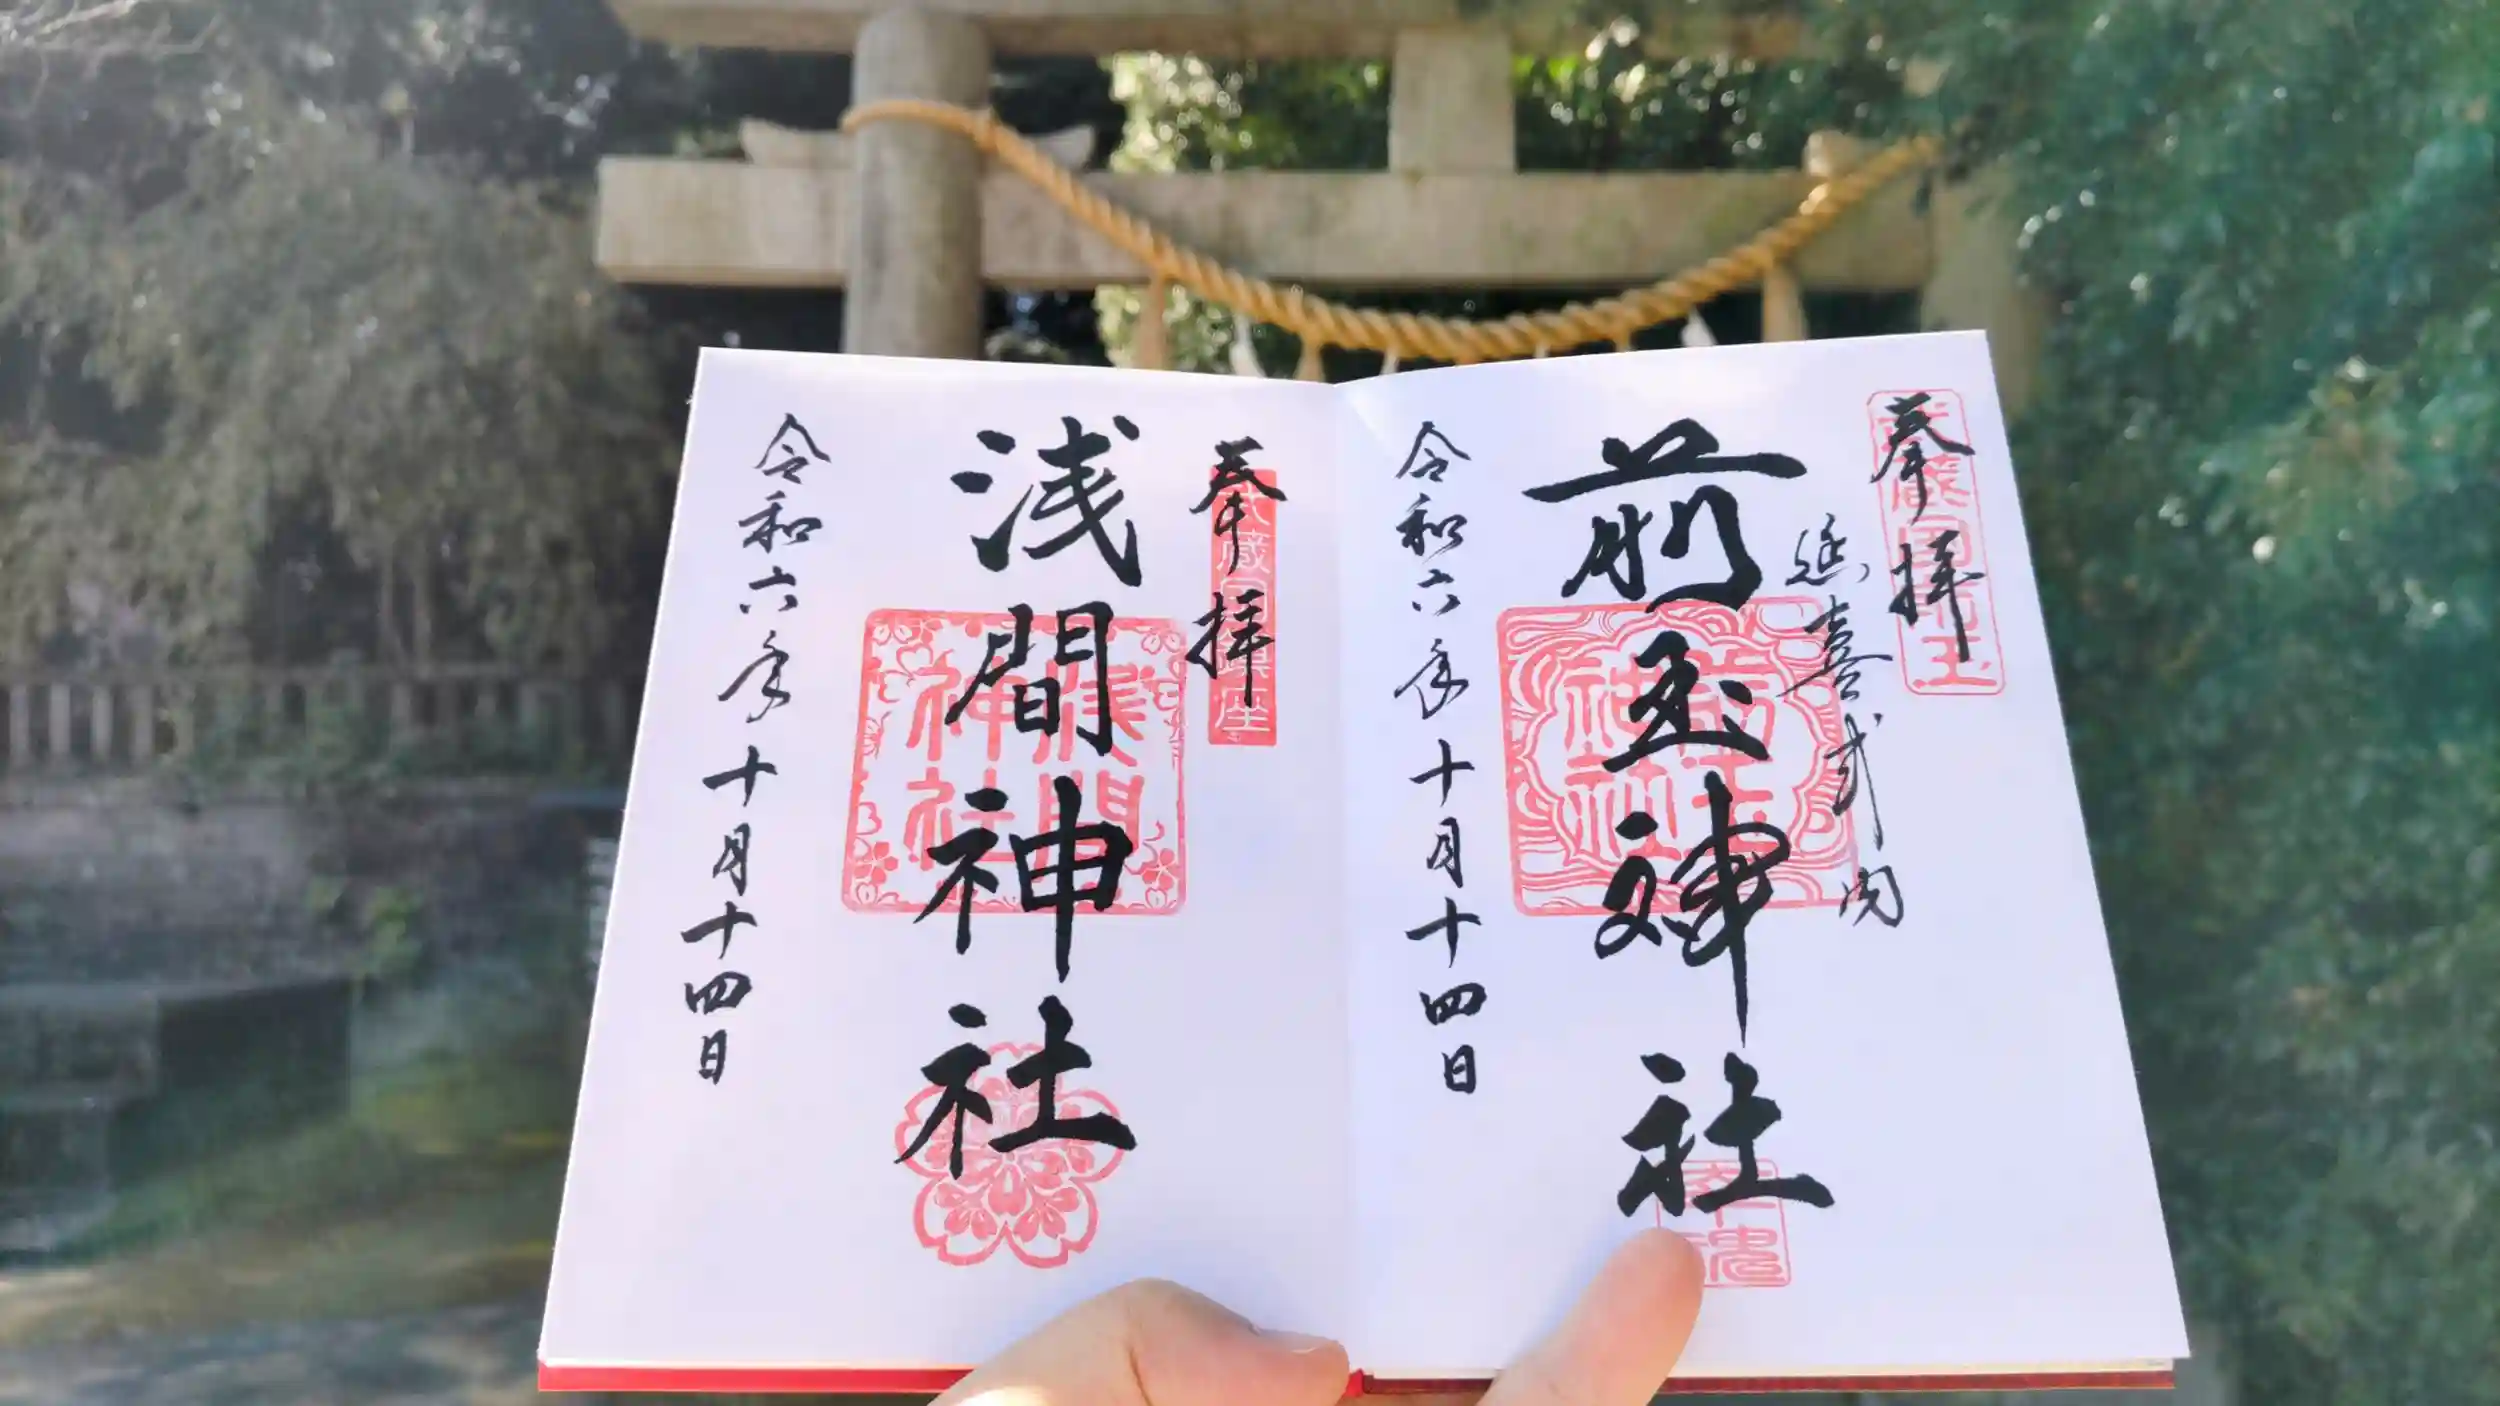 奉拝
延喜式内
前玉神社
令和六年十月十四日
奉拝
浅間神社
令和六年十月十四日
浅間神社
前玉神社